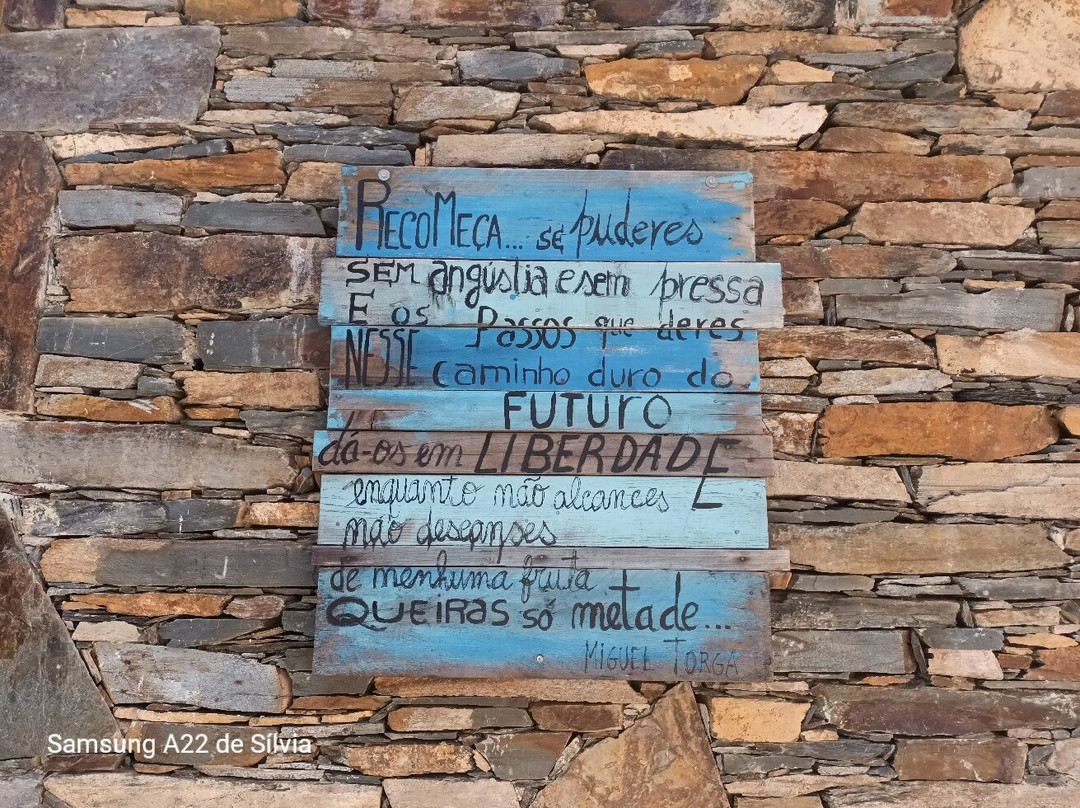 RECOMEÇA... se puderes
SEM angústia e sem pressa
E os Passos que deres
NESSE caminho duro do
FUTURO
dá-os em LIBERDADE
enquanto não alcances E
não descanses
de nenhuma fruta
QUEIRAS só metade...
MIGUEL TORGA
Samsung A22 de Sílvia